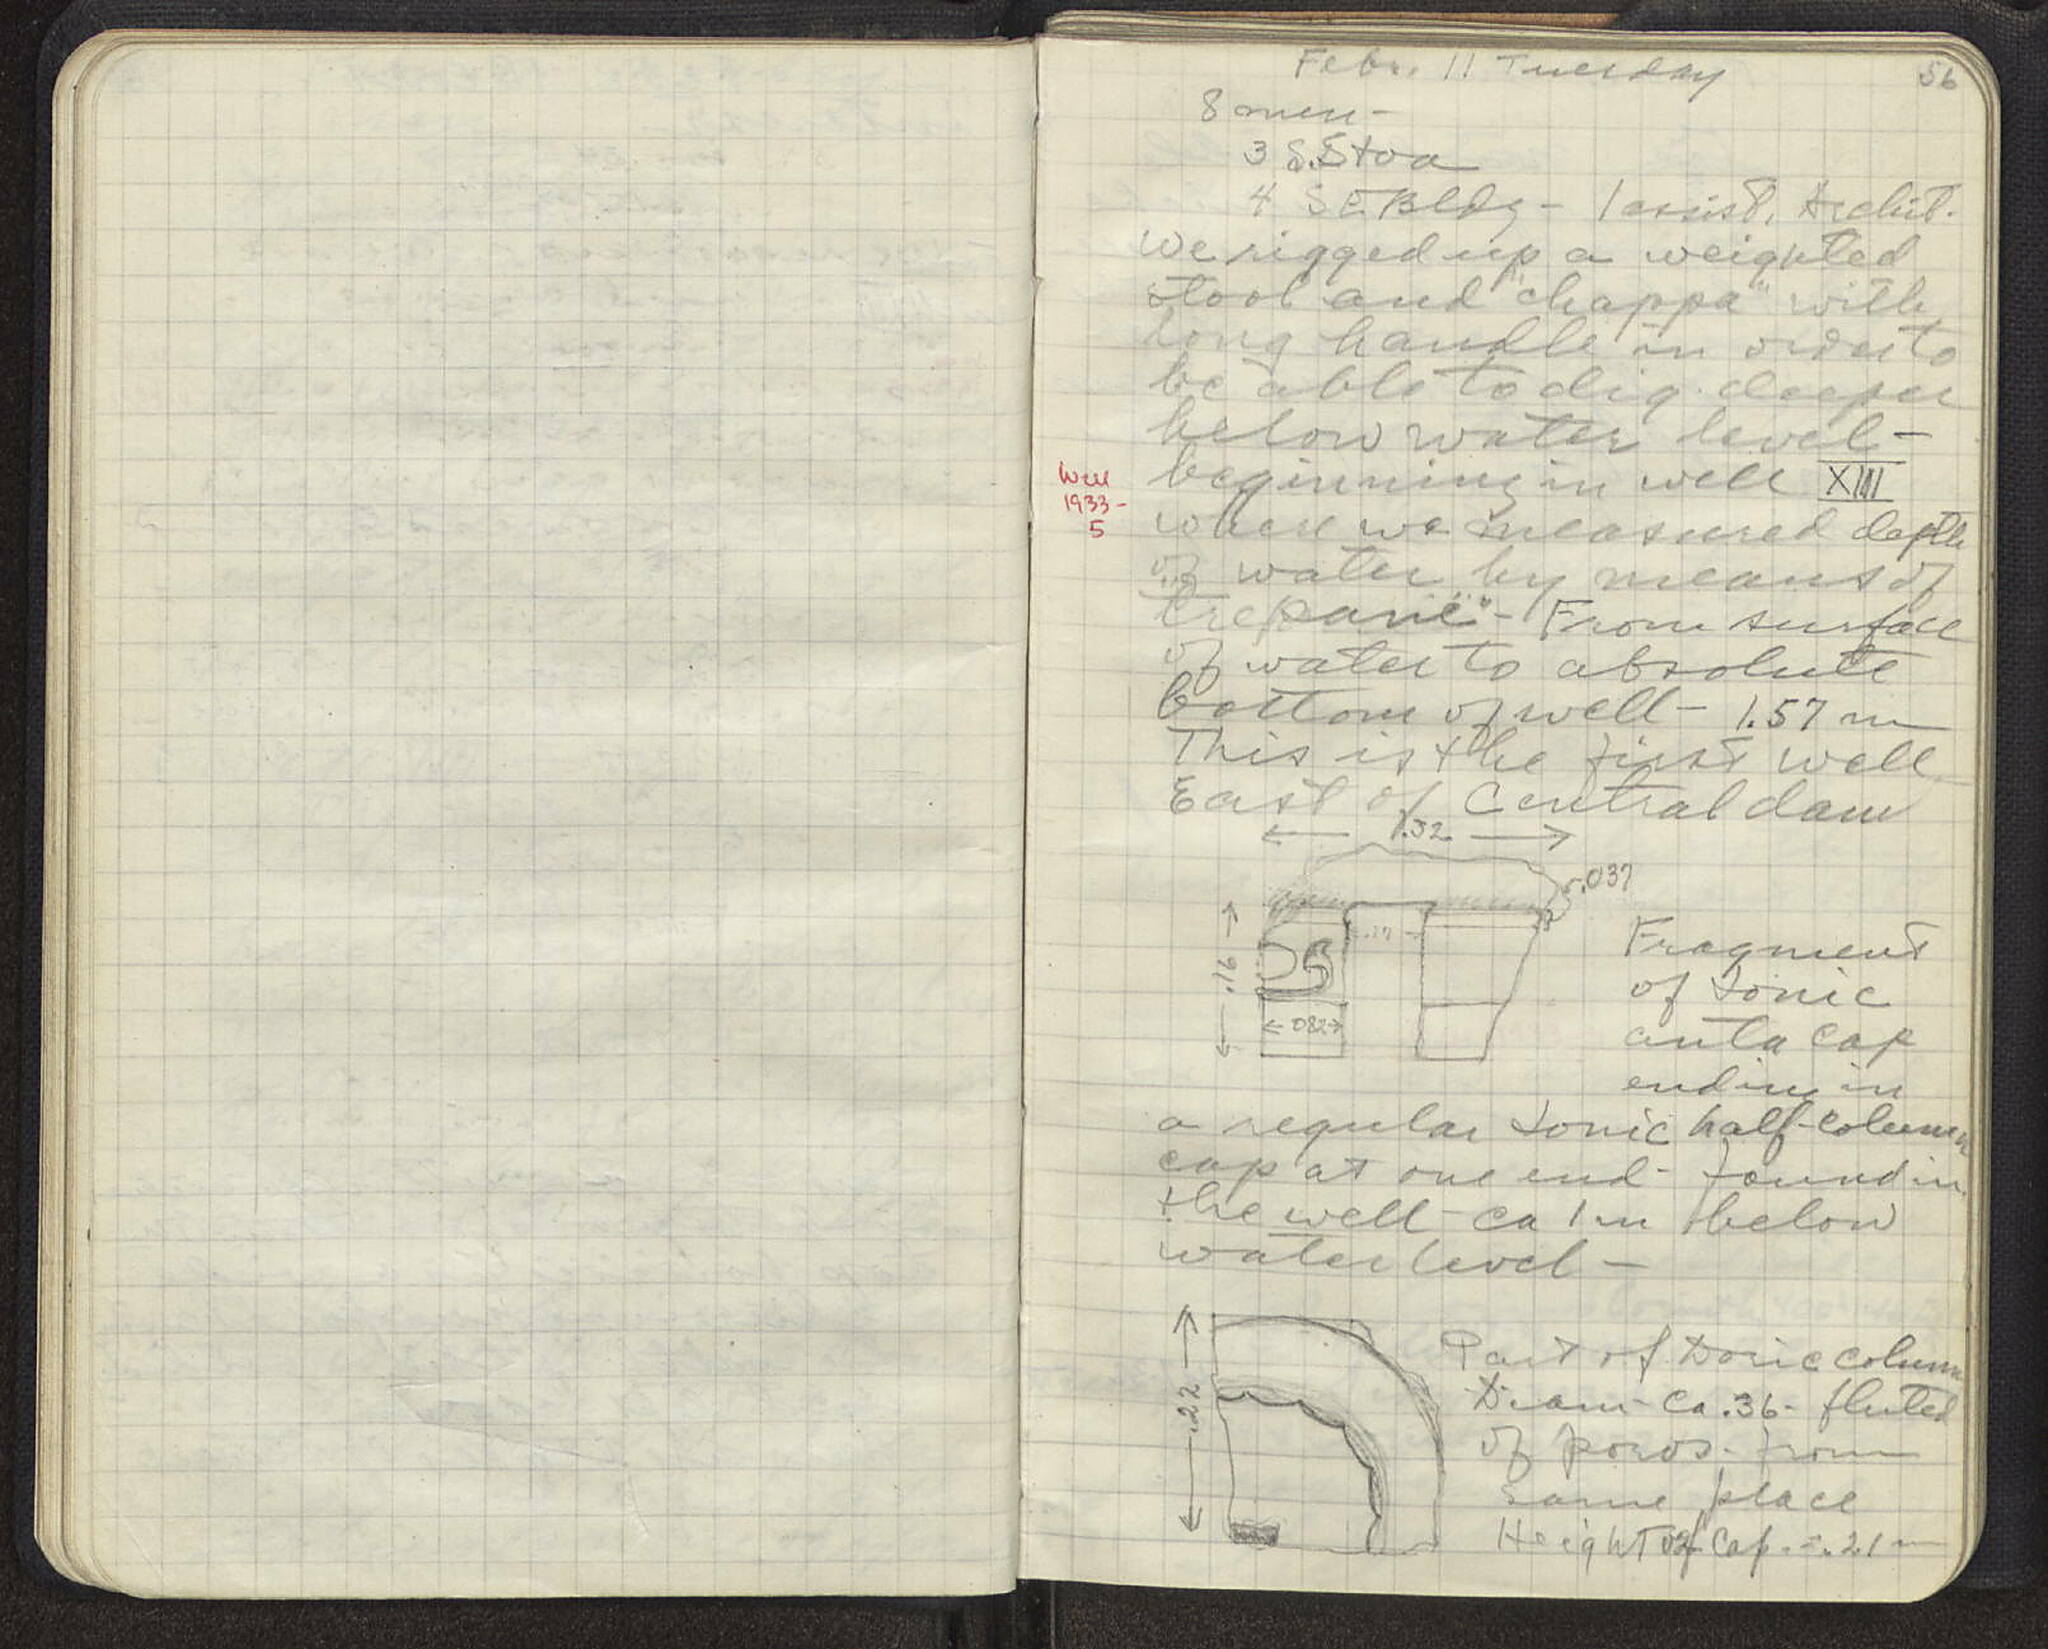 Febr. 11 Tuesday
56
8 men -
3 S. Stoa
4 S E. Bldg - 1 assist. Archit.
We rigged up a weighted
stool and "chappa" with
long handle in order to
be able to dig deeper
below water level -
beginning in well XIII
Well
1933-
5
where we measured depth
of water by means of
"trepani" - From surface
of water to absolute
bottom of well - 1.57 m
This is the first well
East of Central dam
.32
.037
.16
.082
Fragment
of Ionic
anta cap
ending in
a regular Ionic half-column
cap at one end - found in
the well - ca 1 m below
water level -
.22
Part of Doric column
Diam - ca .36 - fluted
of poros - from
same place
Height of Cap. = .21 m